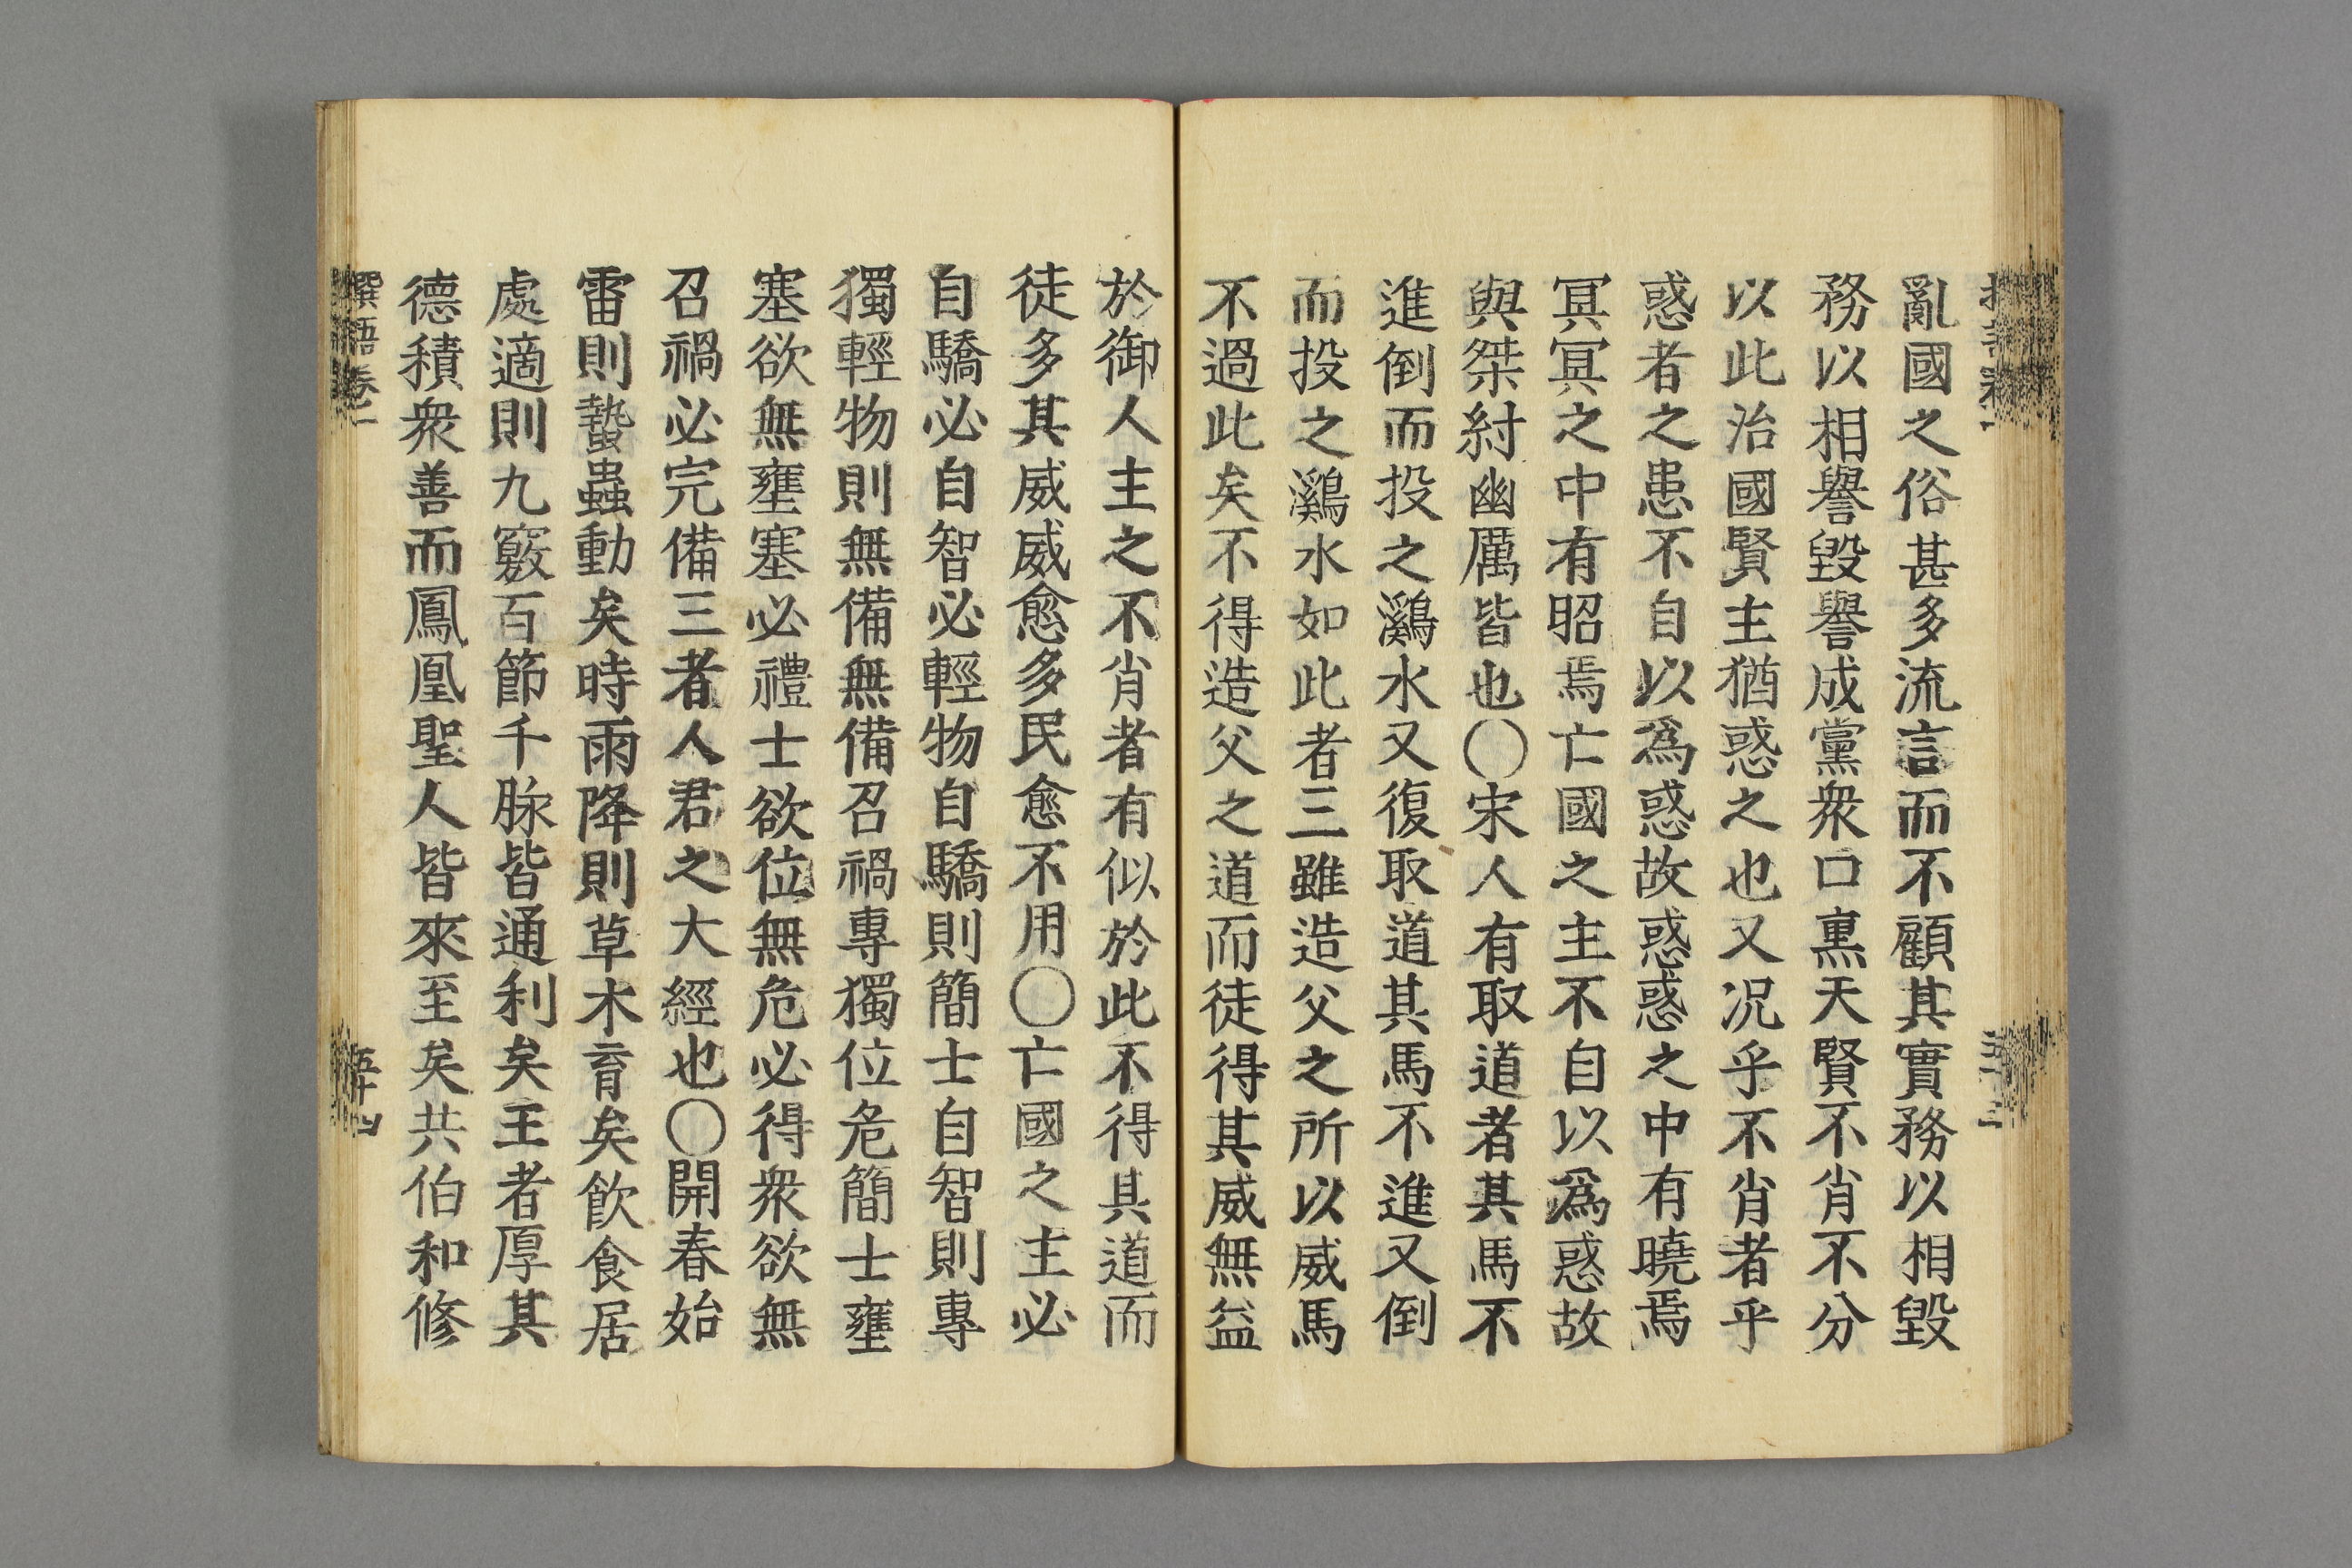 亂國之俗甚多流言而不顧其實務以相毀
務以相譽毀譽成黨衆口熏天賢不肖不分
以此治國賢主猶惑之也又况乎不肖者乎
惑者之患不自以爲惑故惑惑之中有曉焉
冥冥之中有昭焉亡國之主不自以爲惑故
與桀紂幽厲皆也〇宋人有取道者其馬不
進倒而投之鸂水又復取道其馬不進又倒
而投之鸂水如此者三雖造父之所以威馬
不過此矣不得造父之道而徒得其威無益
於御人主之不肖者有似於此不得其道而
徒多其威威愈多民愈不用〇亡國之主必
自驕必自智必輕物自驕則簡士自智則專
獨輕物則無備無備召禍專獨位危簡士壅
塞欲無壅塞必禮士欲位無危必得衆欲無
召禍必完備三者人君之大經也〇開春始
雷則蟄蟲動矣時雨降則草木育矣飮食居
處適則九竅百節千脉皆通利矣王者厚其
德積衆善而鳳凰聖人皆來至矣共伯和修
撰語卷二
五十四